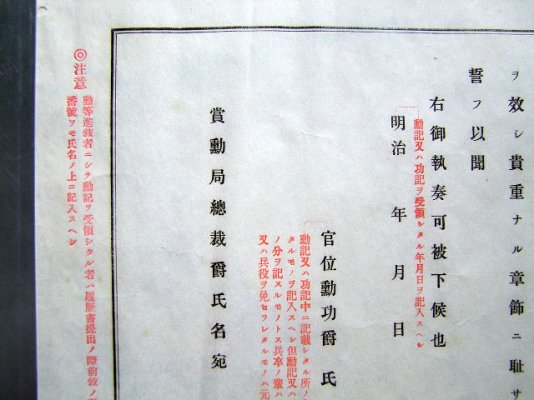 ヲ效シ貴重ナル章飾ニ耻サ
誓フ以聞
右御執奏可被下候也
勳記又ハ功記ヲ受領シタル年月日ヲ記入スヘシ
明治 年 月 日
官位勳功爵氏
勳記又ハ功記中ニ記載シタル所ノ
タルモノヲ記入スヘシ但勳記又ハ
ノ分ヲ記スルモノトス兵卒ノ輩ハ
又ハ兵役ヲ免セラレタルモノハ元
賞勳局總裁爵氏名宛
◎注意
勳等進敍者ニシテ勳記ヲ受領シタル者ハ履歷書提出ノ際前敍ノ
番號ヲモ氏名ノ上ニ記入スヘシ